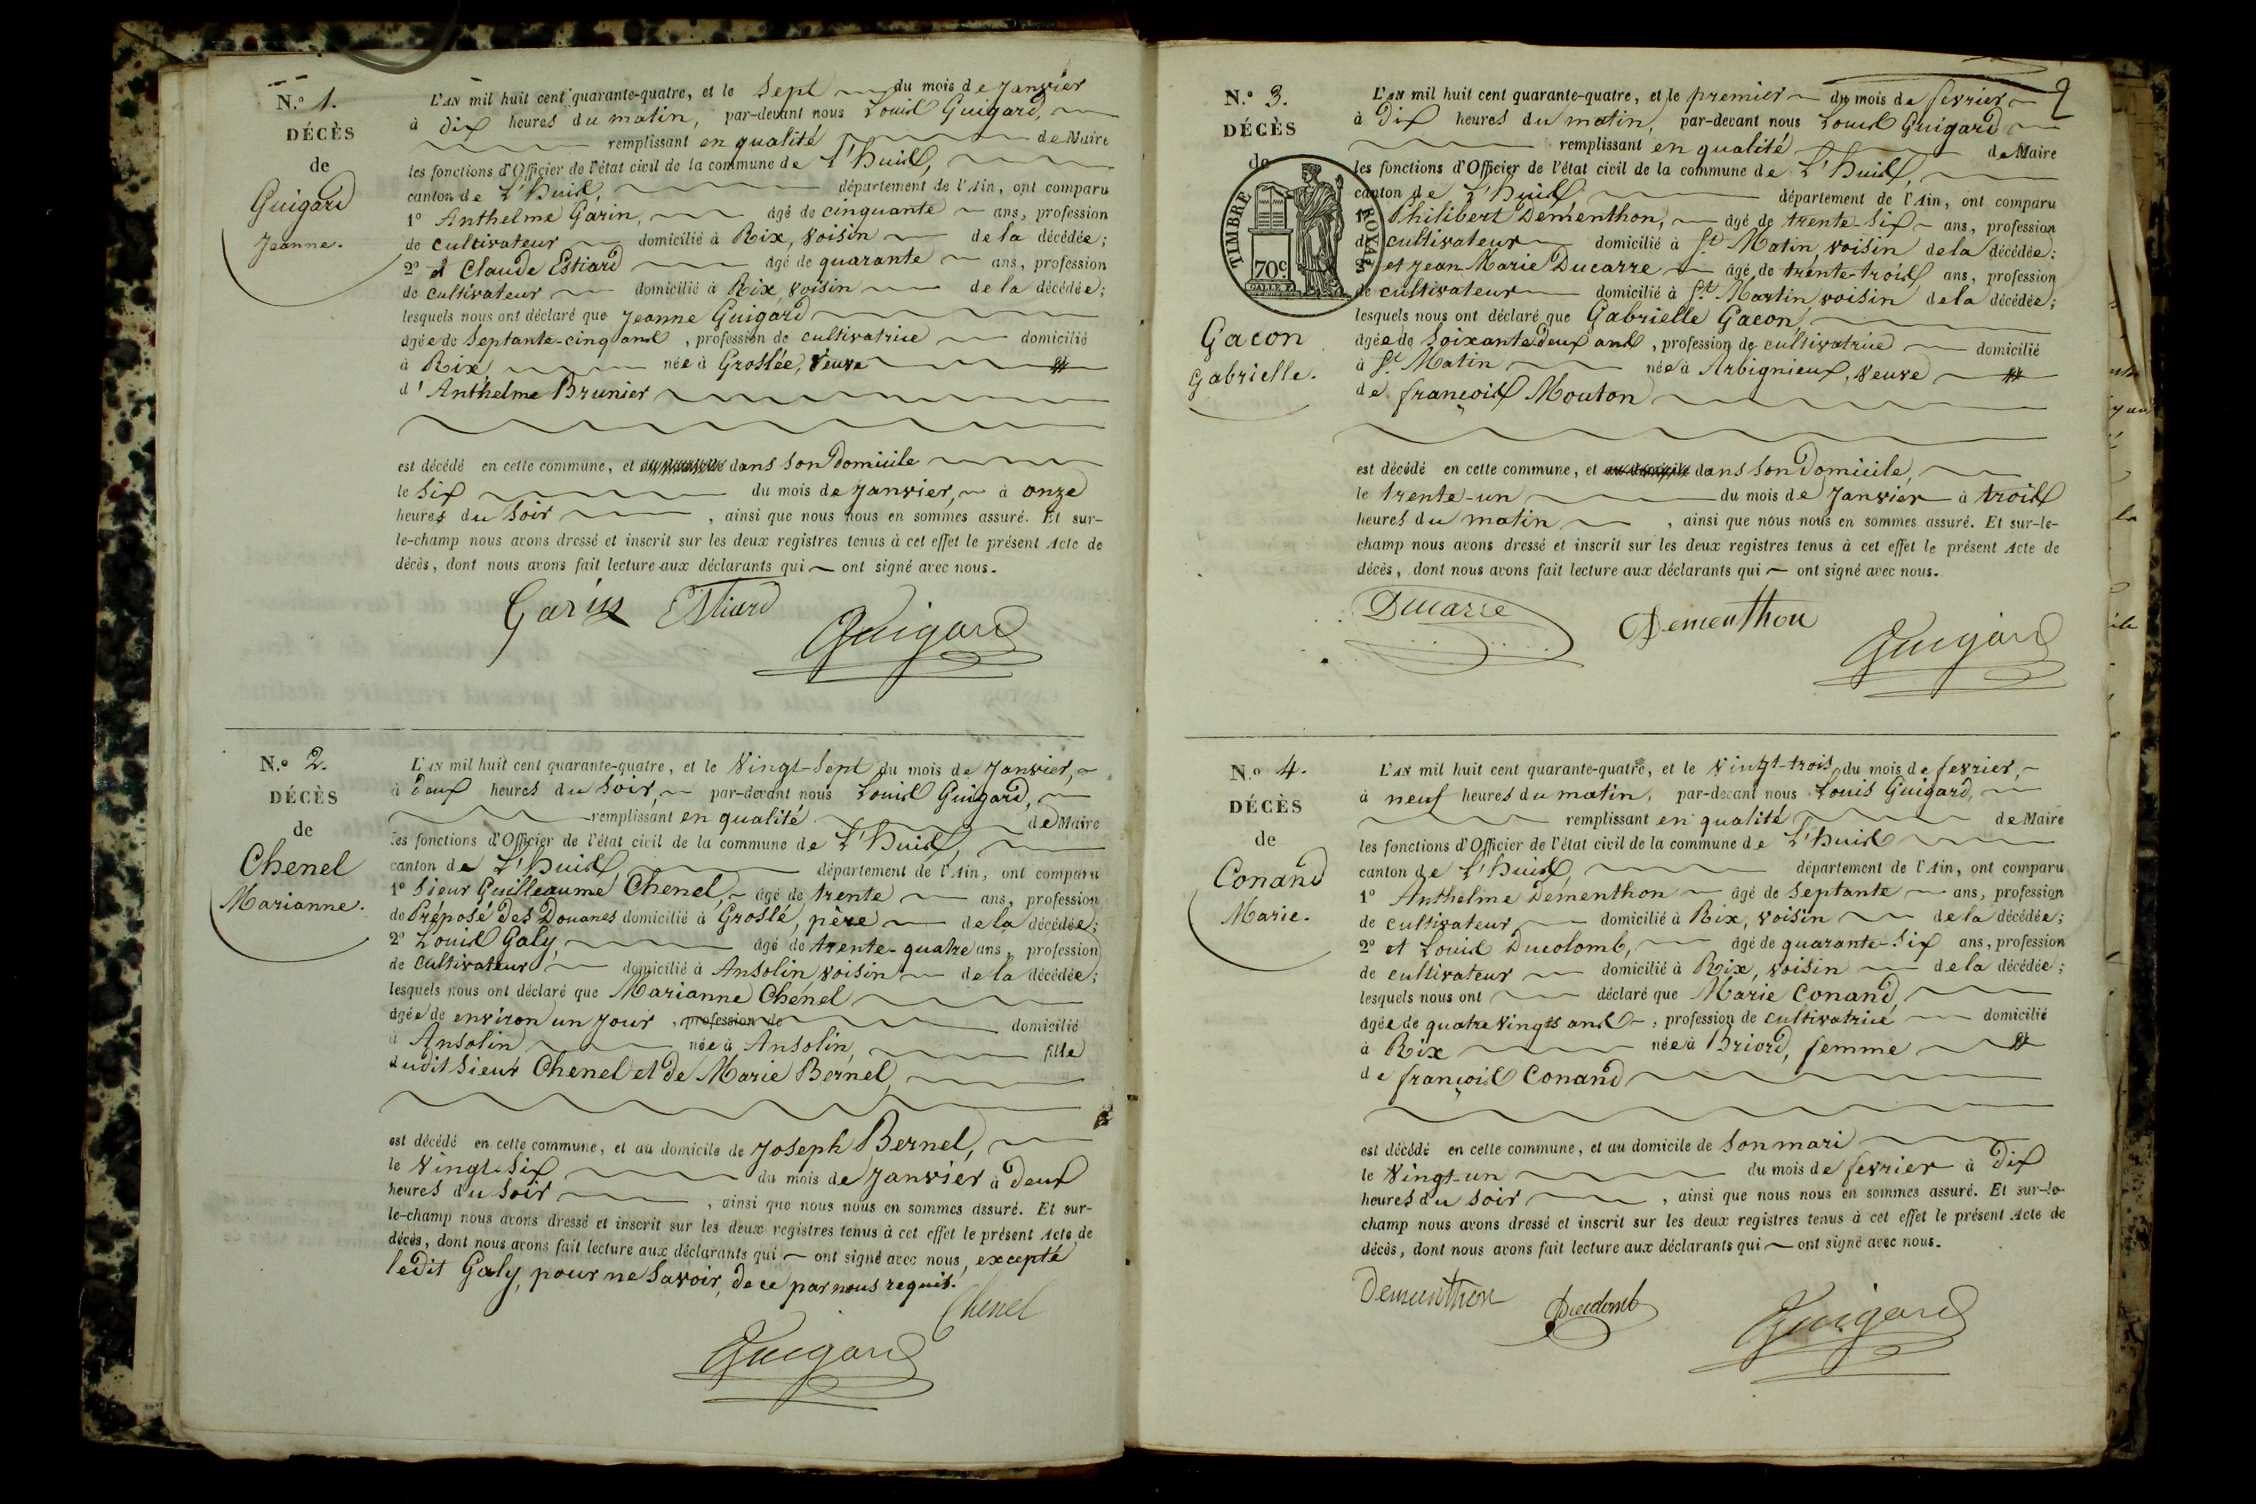 N.° 1.
DÉCÈS
de
Guigard
Jeanne.
L'AN mil huit cent quarante-quatre, et le Sept du mois de Janvier
à dix heures du matin, par-devant nous Louis Guigard,
remplissant en qualité de Maire
les fonctions d'Officier de l'état civil de la commune de L'huis,
canton de L'huis, département de l'Ain, ont comparu
1° Anthelme Garin, âgé de cinquante ans, profession
de cultivateur domicilié à Rix, voisin de la décédée;
2° et Claude Estiard âgé de quarante ans, profession
de cultivateur domicilié à Rix, voisin de la décédée;
lesquels nous ont déclaré que Jeanne Guigard
âgée de Septante-cinq ans, profession de cultivatrice domicilié
à Rix, née à Groslée, veuve
d'Anthelme Brunier
est décédé en cette commune, et dans son domicile
le Six du mois de Janvier, à onze
heures du soir, ainsi que nous nous en sommes assuré. Et sur-
le-champ nous avons dressé et inscrit sur les deux registres tenus à cet effet le présent Acte de
décès, dont nous avons fait lecture aux déclarants qui ont signé avec nous.
Garin Estiard
Guigard
N.° 2.
DÉCÈS
de
Chenel
Marianne.
L'AN mil huit cent quarante-quatre, et le Vingt-Sept du mois de Janvier,
à deux heures du soir, par-devant nous Louis Guigard,
remplissant en qualité de Maire
les fonctions d'Officier de l'état civil de la commune de L'huis,
canton de L'huis, département de l'Ain, ont comparu
1° Sieur Guilleaume Chenel, âgé de trente ans, profession
de Préposé des Douanes domicilié à Groslé, père de la décédée;
2° Louis Galy, âgé de trente-quatre ans, profession
de cultivateur domicilié à Ansolin, voisin de la décédée;
lesquels nous ont déclaré que Marianne Chenel
âgée de environ un jour, profession de domicilié
à Ansolin née à Ansolin, fille
dudit Sieur Chenel et de Marie Bernel,
est décédé en cette commune, et au domicile de Joseph Bernel,
le Vingt-Six du mois de Janvier à deux
heures du soir, ainsi que nous nous en sommes assuré. Et sur-
le-champ nous avons dressé et inscrit sur les deux registres tenus à cet effet le présent Acte de
décès, dont nous avons fait lecture aux déclarants qui ont signé avec nous, excepté
ledit Galy, pour ne Savoir, de ce par nous requis.
Chenel
Guigard
2
N.° 3.
DÉCÈS
de
TIMBRE ROYAL
70c.
Gacon
Gabrielle.
L'AN mil huit cent quarante-quatre, et le premier du mois de fevrier
à dix heures du matin, par-devant nous Louis Guigard
remplissant en qualité de Maire
les fonctions d'Officier de l'état civil de la commune de L'huis,
canton de L'huis département de l'Ain, ont comparu
1° Philibert Dementhon, âgé de trente-six ans, profession
de cultivateur domicilié à St Matin, voisin de la décédée;
2° et Jean Marie Ducarre âgé de trente-trois ans, profession
de cultivateur domicilié à St Martin voisin de la décédée;
lesquels nous ont déclaré que Gabrielle Gacon,
âgée de Soixante deux ans, profession de cultivatrice domicilié
à St Matin née à Arbignieux, veuve
de françois Mouton
est décédé en cette commune, et au domicile dans son Domicile,
le trente-un du mois de Janvier à trois
heures du matin, ainsi que nous nous en sommes assuré. Et sur-le-
champ nous avons dressé et inscrit sur les deux registres tenus à cet effet le présent Acte de
décès, dont nous avons fait lecture aux déclarants qui ont signé avec nous.
Ducarre Dementhon
Guigard
N.° 4.
DÉCÈS
de
Conand
Marie.
L'AN mil huit cent quarante-quatre, et le vingt-trois du mois de fevrier,
à neuf heures du matin, par-devant nous Louis Guigard,
remplissant en qualité de Maire
les fonctions d'Officier de l'état civil de la commune de L'huis
canton de L'huis, département de l'Ain, ont comparu
1° Anthelme Dementhon âgé de Septante ans, profession
de cultivateur domicilié à Rix, voisin de la décédée;
2° et Louis Ducolomb, âgé de quarante-six ans, profession
de cultivateur domicilié à Rix, voisin de la décédée;
lesquels nous ont déclaré que Marie Conand,
âgée de quatre vingts ans, profession de cultivatrice domicilié
à Rix née à Briord, femme
de françois Conand
est décédé en cette commune, et au domicile de Son mari
le Vingt-un du mois de fevrier à dix
heures du soir, ainsi que nous nous en sommes assuré. Et sur-le-
champ nous avons dressé et inscrit sur les deux registres tenus à cet effet le présent Acte de
décès, dont nous avons fait lecture aux déclarants qui ont signé avec nous.
Dementhon Ducolomb
Guigard